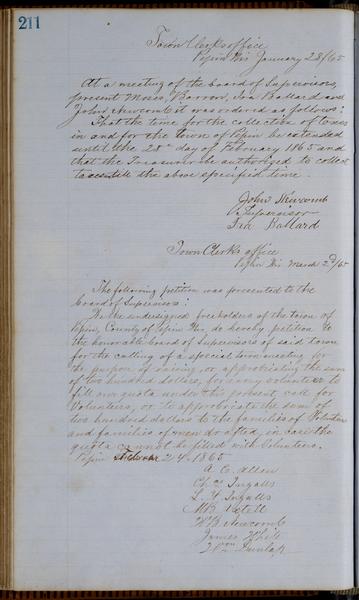 211
Town Clerks office
Pepin Wis January 28/65
At a meeting of the board of Supervisors
present Moses Barron, Ira Ballard and
John Newcomb it was ordered as follows:
That the time for the collection of taxes
in and for the town of Pepin be extended
until the 20th day of February 1865 and
that the Treasurer be authorized to collect
taxes till the above specified time.
John Newcomb
Supervisor
Ira Ballard
Town Clerks office
Pepin Wis March 2d/65
The following petition was presented to the
board of Supervisors:
We the undersigned freeholders of the town of
Pepin, County of Pepin Wis, do hereby petition to
the honorable board of Supervisors of said town
for the calling of a special town meeting for
the purpose of raising, or appropriating the sum
of two hundred dollars, for every volunteer to
fill our quota under the present call for
Volunteers, or to appropriate the sum of
two hundred dollars to the families of Volunteers
and families of men drafted, in case the
quota cannot be filled with Volunteers.
Pepin February 24 1865
A. C. Allen
Ch. Ingalls
L. H. Ingalls
M B Axtell
W B Newcomb
James White
Wm Dunlap